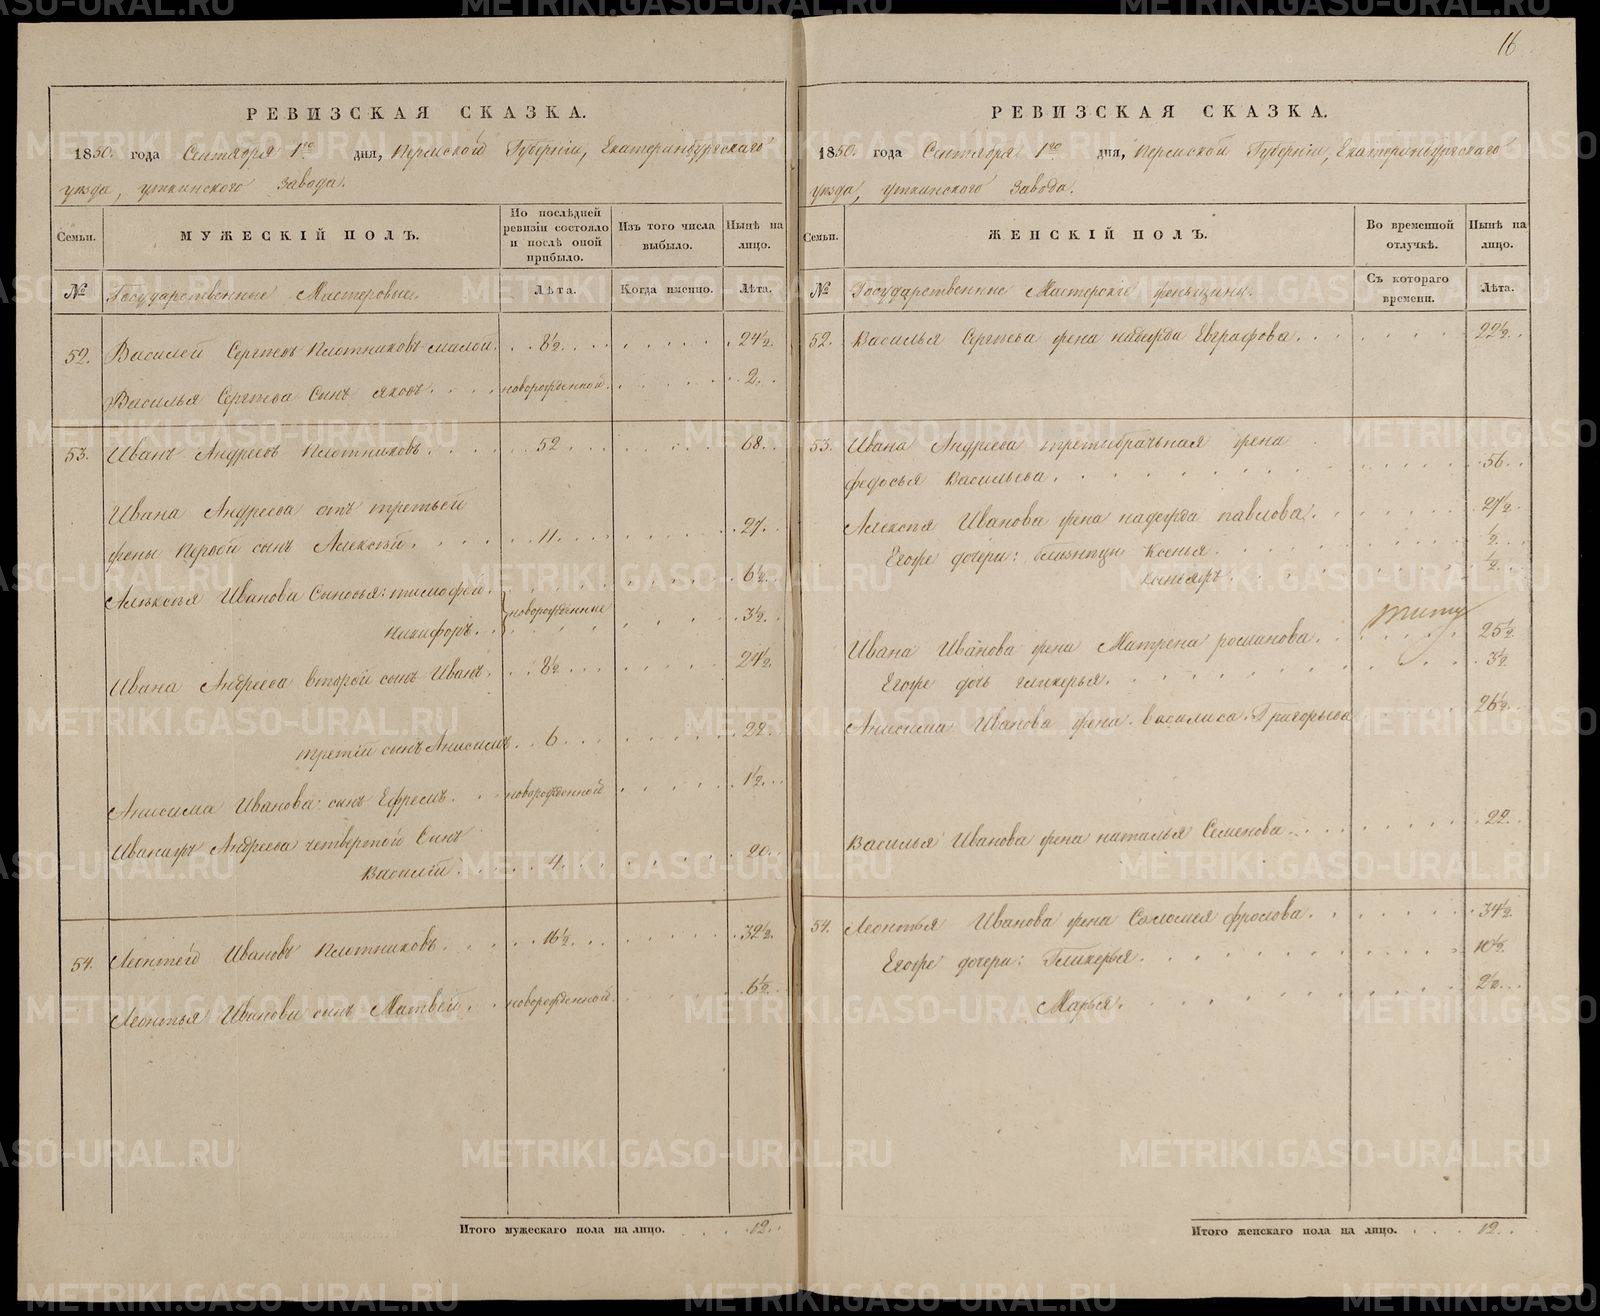 16
РЕВИЗСКАЯ СКАЗКА.
1850. года Сентября 1го дня, Пермской Губерніи, Екатеринбургскаго
уезда, уткинского Завода.
Семьи.
МУЖЕСКІЙ ПОЛЪ.
По послѣдней ревизіи состояло и послѣ оной прибыло.
Изъ того числа выбыло.
Нынѣ на лицо.
№
Государственные Мастеровые.
Лѣта.
Когда именно.
Лѣта.
52. Василей Сергеевъ Плотниковъ малой. 8½. 24½.
Василья Сергѣева Сынъ яковъ. новорожденной. 2.
53. Иванъ Андреевъ Плотниковъ. 52. 68.
Ивана Андреева отъ третьей
жены Первой сынъ Алексѣй. 11. 27.
Алексѣя Иванова Сыновья: тимофей. 6½.
новорожденные
Никифоръ. 3½.
Ивана Андреева второй сынъ Иванъ. 8½. 24½.
третій сынъ Анисимъ. 6. 22.
Анисима Иванова сынъ Ефремъ. новорожденной. 1½.
Иванажъ Андреева четвертой Сынъ
Василій. 4. 20.
54. Леонтей Ивановъ Плотниковъ. 16½. 32½.
Леонтья Иванова сынъ Матвей. новорожденной. 6½.
Итого мужескаго пола на лицо. 12.
РЕВИЗСКАЯ СКАЗКА.
1850. года Сентября 1го дня, Пермской Губерніи, Екатеринбургскаго
уезда, уткинского Завода.
Семьи.
ЖЕНСКІЙ ПОЛЪ.
Во временной отлучкѣ.
Нынѣ на лицо.
№
Государственные Мастерскіе женьщины.
Съ котораго времени.
Лѣта.
52. Василья Сергѣева жена надежда Евграфова. 22½.
53. Ивана Андреева третьебрачьная жена
федосья Васильева. 56.
Алексѣя Иванова жена надежда павлова. 27½.
Егоже дочери: близнецы Ксенья. ½.
½.
Ивана Иванова жена Матрена романова. 25½.
Егоже дочь гликерья. 3½.
Анисима Иванова жена василиса Григорьева 26½.
Василья Иванова жена наталья Семенова. 22.
54. Леонтья Иванова жена Саломея фролова. 34½.
Егоже дочери: Гликерья. 10½.
Марья. 2½.
Итого женскаго пола на лицо. 12.
METRIKI.GASO-URAL.RU